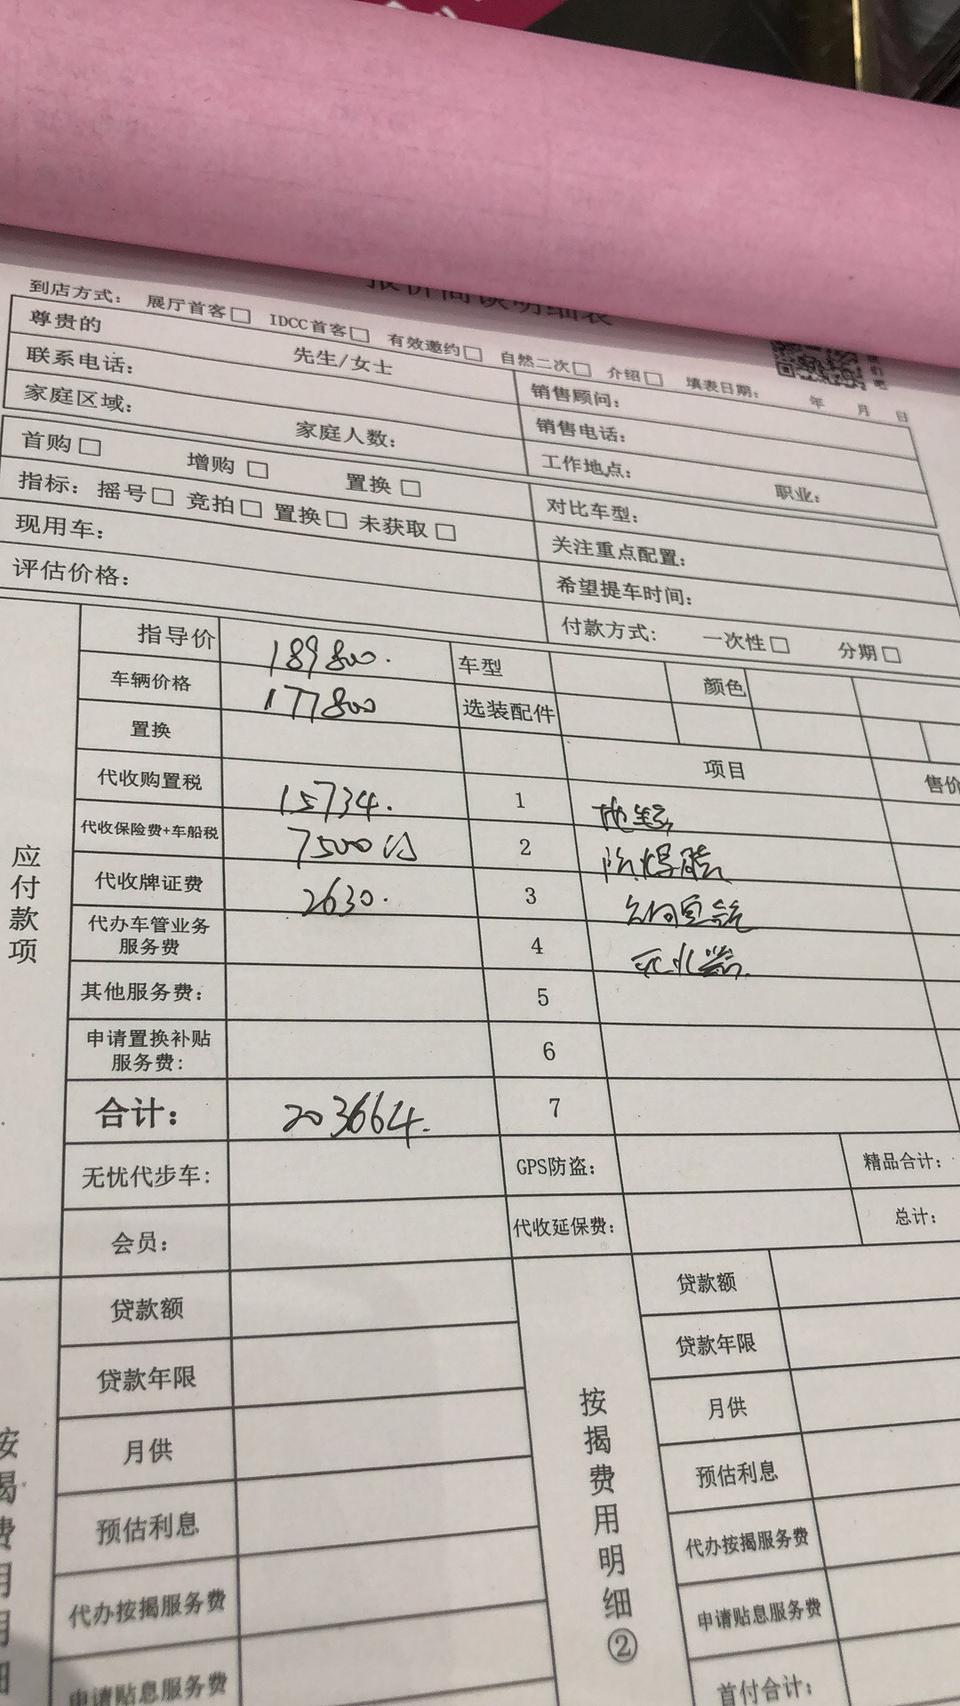 报价商谈明细表
到店方式： 展厅首客□ IDCC首客□ 有效邀约□ 自然二次□ 介绍□ 填表日期： 年 月 日
尊贵的 先生/女士 销售顾问：
联系电话： 销售电话：
家庭区域： 家庭人数： 工作地点： 职业：
首购□ 增购□ 置换□ 对比车型：
指标：摇号□ 竞拍□ 置换□ 未获取□ 关注重点配置：
现用车： 希望提车时间：
评估价格： 付款方式： 一次性□ 分期□
应付款项
指导价 189800. 车型 颜色
车辆价格 177800 选装配件
置换 项目 售价
代收购置税 15734. 1
代收保险费+车船税 7500 2 防爆膜
代收牌证费 2630. 3
代办车管业务服务费 4 灭火器
其他服务费： 5
申请置换补贴服务费: 6
合计： 203664. 7
无忧代步车: GPS防盗: 精品合计:
会员： 代收延保费: 总计:
贷款额 贷款额
贷款年限 贷款年限
月供 月供
预估利息 预估利息
代办按揭服务费 代办按揭服务费
申请贴息服务费 申请贴息服务费
首付合计：
按揭费用明细②